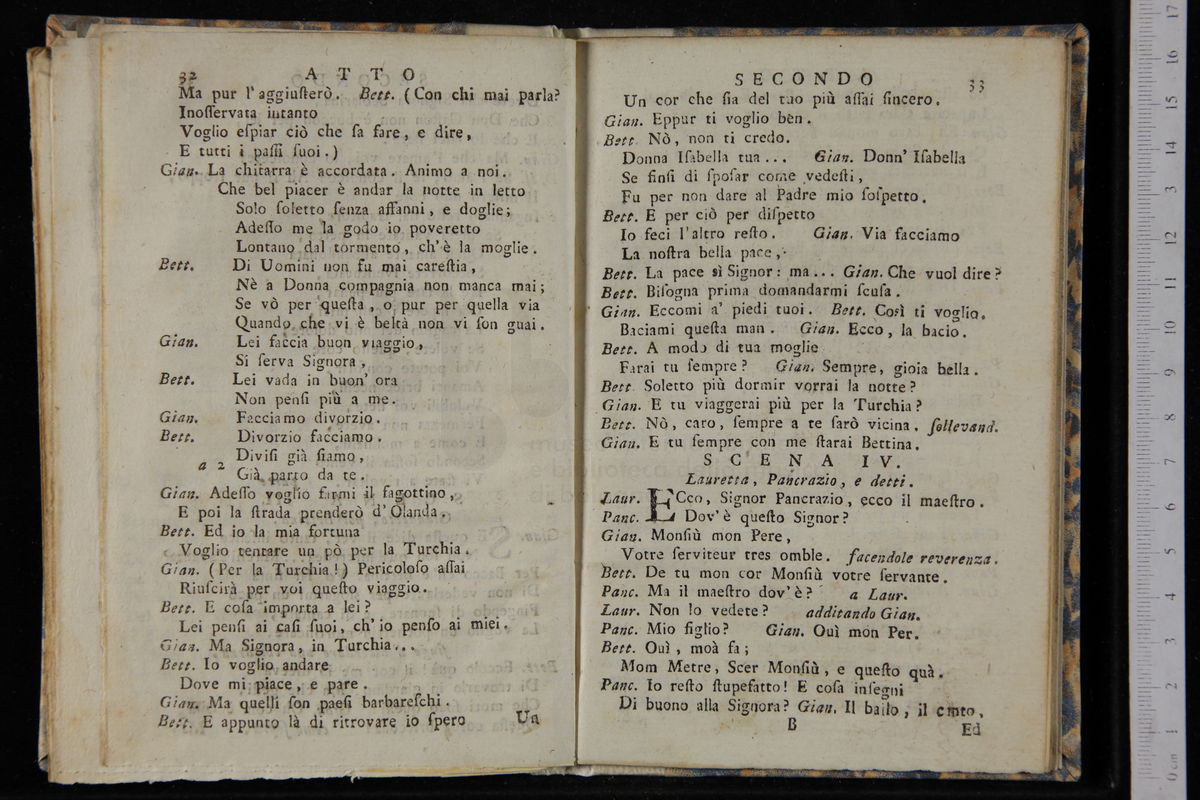 32 ATTO
Ma pur l'aggiuſterò. Bett. (Con chi mai parla?
Inoſſervata intanto
Voglio eſpiar ciò che fa fare, e dire,
E tutti i paſſi ſuoi.)
Gian. La chitarra è accordata. Animo a noi.
Che bel piacer è andar la notte in letto
Solo ſoletto ſenza affanni, e doglie;
Adeſſo me la godo io poveretto
Lontano dal tormento, ch'è la moglie.
Bett. Di Uomini non fu mai careſtia,
Nè a Donna compagnia non manca mai;
Se vò per queſta, o pur per quella via
Quando che vi è beltà non vi ſon guai.
Gian. Lei faccia buon viaggio,
Si ſerva Signora,
Bett. Lei vada in buon' ora
Non penſi più a me.
Gian. Facciamo divorzio.
Bett. Divorzio facciamo.
a 2 Diviſi già ſiamo,
Già parto da te.
Gian. Adeſſo voglio farmi il fagottino,
E poi la ſtrada prenderò d'Olanda.
Bett. Ed io la mia fortuna
Voglio tentare un pò per la Turchia.
Gian. (Per la Turchia!) Pericoloſo aſſai
Riuſcirà per voi queſto viaggio.
Bett. E coſa importa a lei?
Lei penſi ai caſi ſuoi, ch'io penſo ai miei.
Gian. Ma Signora, in Turchia...
Bett. Io voglio andare
Dove mi piace, e pare.
Gian. Ma quelli ſon paeſi barbareſchi.
Bett. E appunto là di ritrovare io ſpero
Un
SECONDO 33
Un cor che ſia del tuo più aſſai ſincero.
Gian. Eppur ti voglio ben.
Bett. Nò, non ti credo.
Donna Iſabella tua... Gian. Donn' Iſabella
Se finſi di ſpoſar come vedeſti,
Fu per non dare al Padre mio ſoſpetto.
Bett. E per ciò per diſpetto
Io feci l'altro reſto. Gian. Via facciamo
La noſtra bella pace,
Bett. La pace sì Signor: ma... Gian. Che vuol dire?
Bett. Biſogna prima domandarmi ſcuſa.
Gian. Eccomi a' piedi tuoi. Bett. Così ti voglio.
Baciami queſta man. Gian. Ecco, la bacio.
Bett. A modo di tua moglie
Farai tu ſempre? Gian. Sempre, gioia bella.
Bett. Soletto più dormir vorrai la notte?
Gian. E tu viaggerai più per la Turchia?
Bett. Nò, caro, ſempre a te ſarò vicina. ſollevand.
Gian. E tu ſempre con me ſtarai Bettina.
SCENA IV.
Lauretta, Pancrazio, e detti.
Laur. ECco, Signor Pancrazio, ecco il maeſtro.
Panc. Dov'è queſto Signor?
Gian. Monſiù mon Pere,
Votre ſerviteur tres omble. facendole reverenza.
Bett. De tu mon cor Monſiù votre ſervante.
Panc. Ma il maeſtro dov'è? a Laur.
Laur. Non lo vedete? additando Gian.
Panc. Mio figlio? Gian. Ouì mon Per.
Bett. Ouì, moà fa;
Mom Metre, Scer Monſiù, e queſto quà.
Panc. Io reſto ſtupefatto! E coſa inſegni
Di buono alla Signora? Gian. Il ballo, il canto,
B
Ed